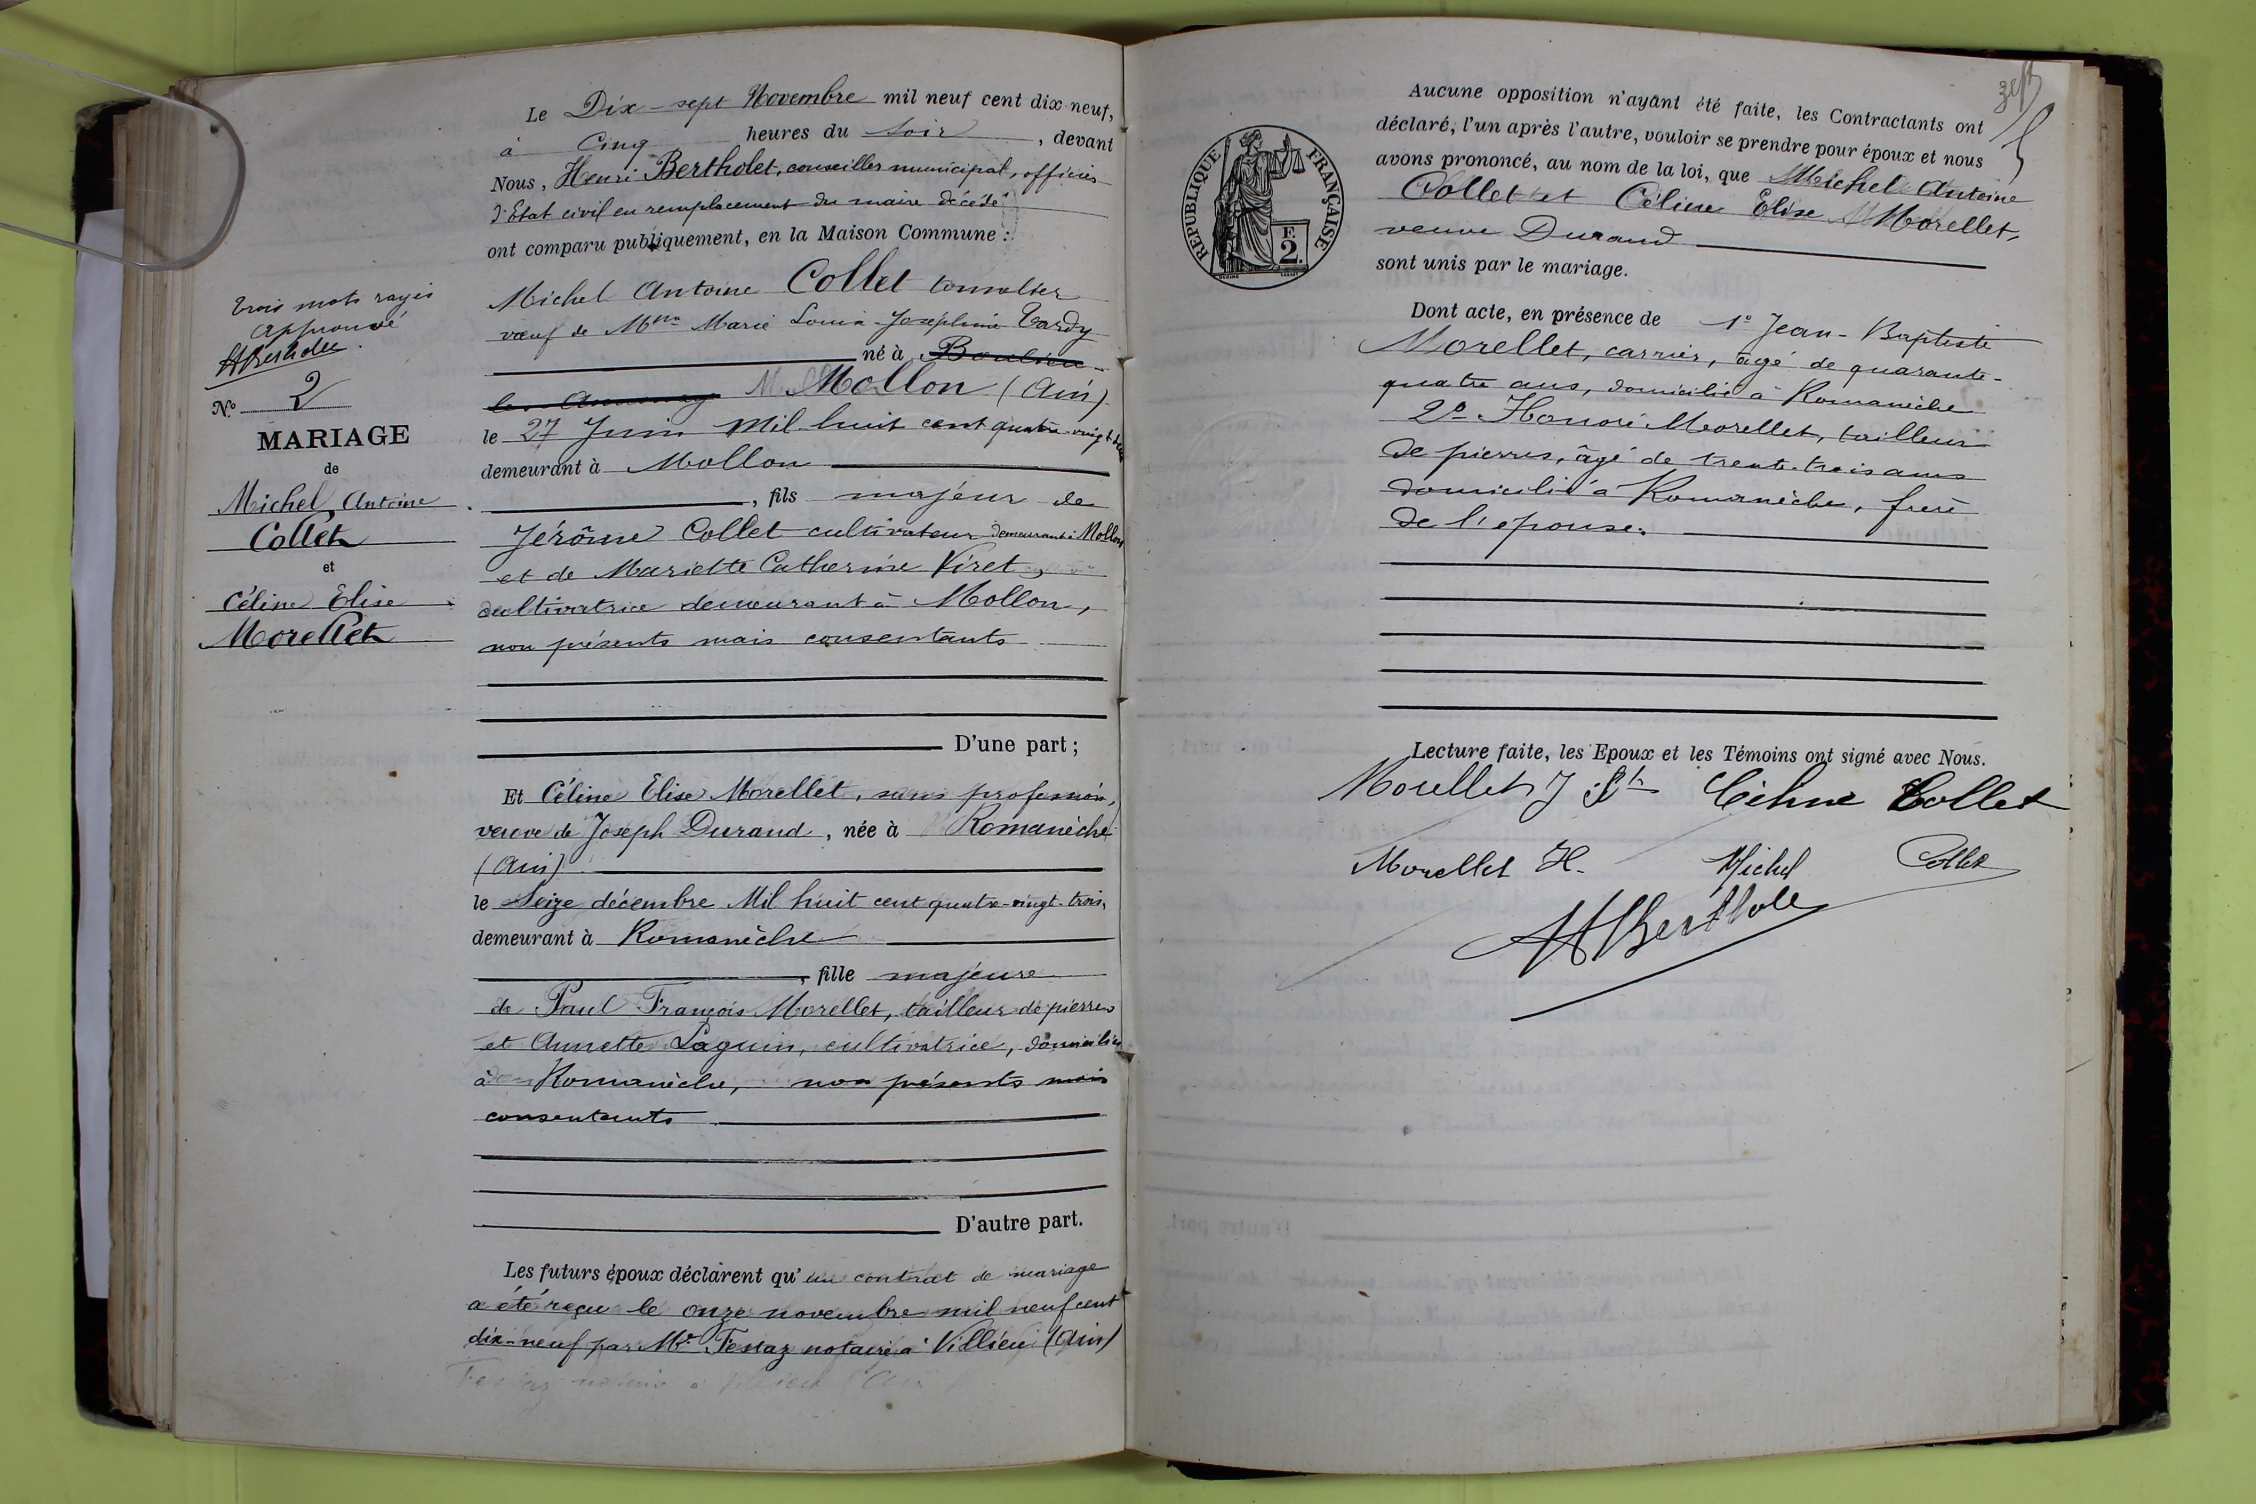 Le Dix-sept Novembre mil neuf cent dix-neuf,
à Cinq heures du soir, devant
Nous, Henri Bertholet, conseiller municipal, officier
d'Etat civil en remplacement du maire décédé
ont comparu publiquement, en la Maison Commune :
Michel Antoine Collet
veuf de Marie Louise Joséphine Tardy
né à Boulieu
les Annonay Mollon (Ain)
le 27 Juin Mil huit cent quatre-vingt
demeurant à Mollon
, fils majeur de
Jérôme Collet cultivateur demeurant à Mollon
et de Mariette Catherine Viret,
cultivatrice demeurant à Mollon,
non présents mais consentants
D'une part ;
Et Céline Elise Morellet, sans profession,
veuve de Joseph Durand, née à Romanèche
(Ain)
le Seize décembre Mil huit cent quatre-vingt-trois,
demeurant à Romanèche
, fille majeure
de Paul François Morellet, tailleur de pierres
et Annette Laguin, cultivatrice, domiciliés
à Romanèche, non présents mais
consentants
D'autre part.
Les futurs époux déclarent qu'un contrat de mariage
a été reçu le onze novembre mil neuf cent
dix-neuf par Me Festaz notaire à Villieu (Ain)
Trois mots rayés
Approuvé
HBertholet
N° 2
MARIAGE
de
Michel Antoine
Collet
et
Céline Elise
Morellet
RÉPUBLIQUE FRANÇAISE
F.
2.
Aucune opposition n'ayant été faite, les Contractants ont
déclaré, l'un après l'autre, vouloir se prendre pour époux et nous
avons prononcé, au nom de la loi, que Michel Antoine
Collet et Céline Elise Morellet,
veuve Durand
sont unis par le mariage.
Dont acte, en présence de 1° Jean-Baptiste
Morellet, carrier, âgé de quarante-
quatre ans, domicilié à Romanèche
2° Honoré Morellet, tailleur
de pierres, âgé de trente-trois ans
domicilié à Romanèche, frère
de l'épouse.
Lecture faite, les Epoux et les Témoins ont signé avec Nous.
Morellet J Bte Céline Collet
Morellet H. Michel Collet
HBertholet